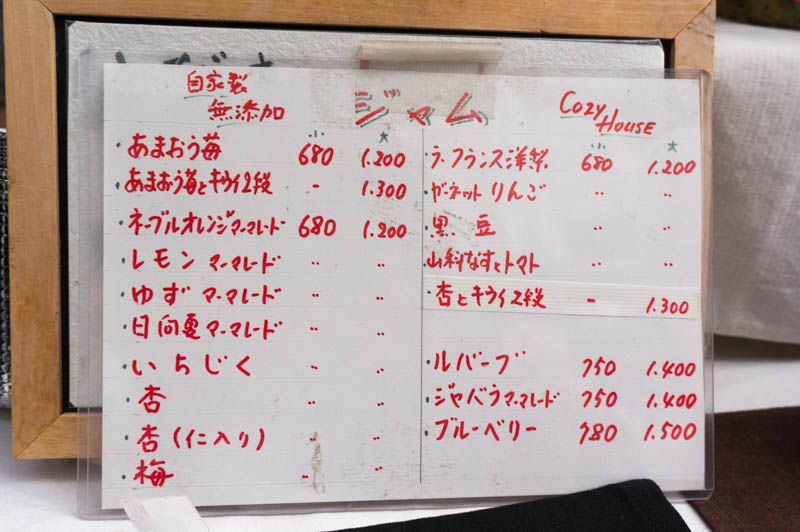 自家製
無添加
ジャム
COZY
HOUSE
小 大
・あまおう苺 680 1.200
・あまおう苺とキウイ2段 - 1.300
・ネーブルオレンジマーマレード 680 1.200
・レモン マーマレード 〃 〃
・ゆず マーマレード 〃 〃
・日向夏マーマレード 〃 〃
・いちじく 〃 〃
・杏 〃 〃
・杏(仁入り) 〃 〃
・梅 〃
小 大
・ラ・フランス洋梨 680 1.200
・ガーネットりんご 〃 〃
・黒豆 〃 〃
・山科なすとトマト 〃 〃
・杏とキウイ2段 - 1.300
・ルバーブ 750 1.400
・ジャバラマーマレード 750 1.400
・ブルーベリー 780 1.500